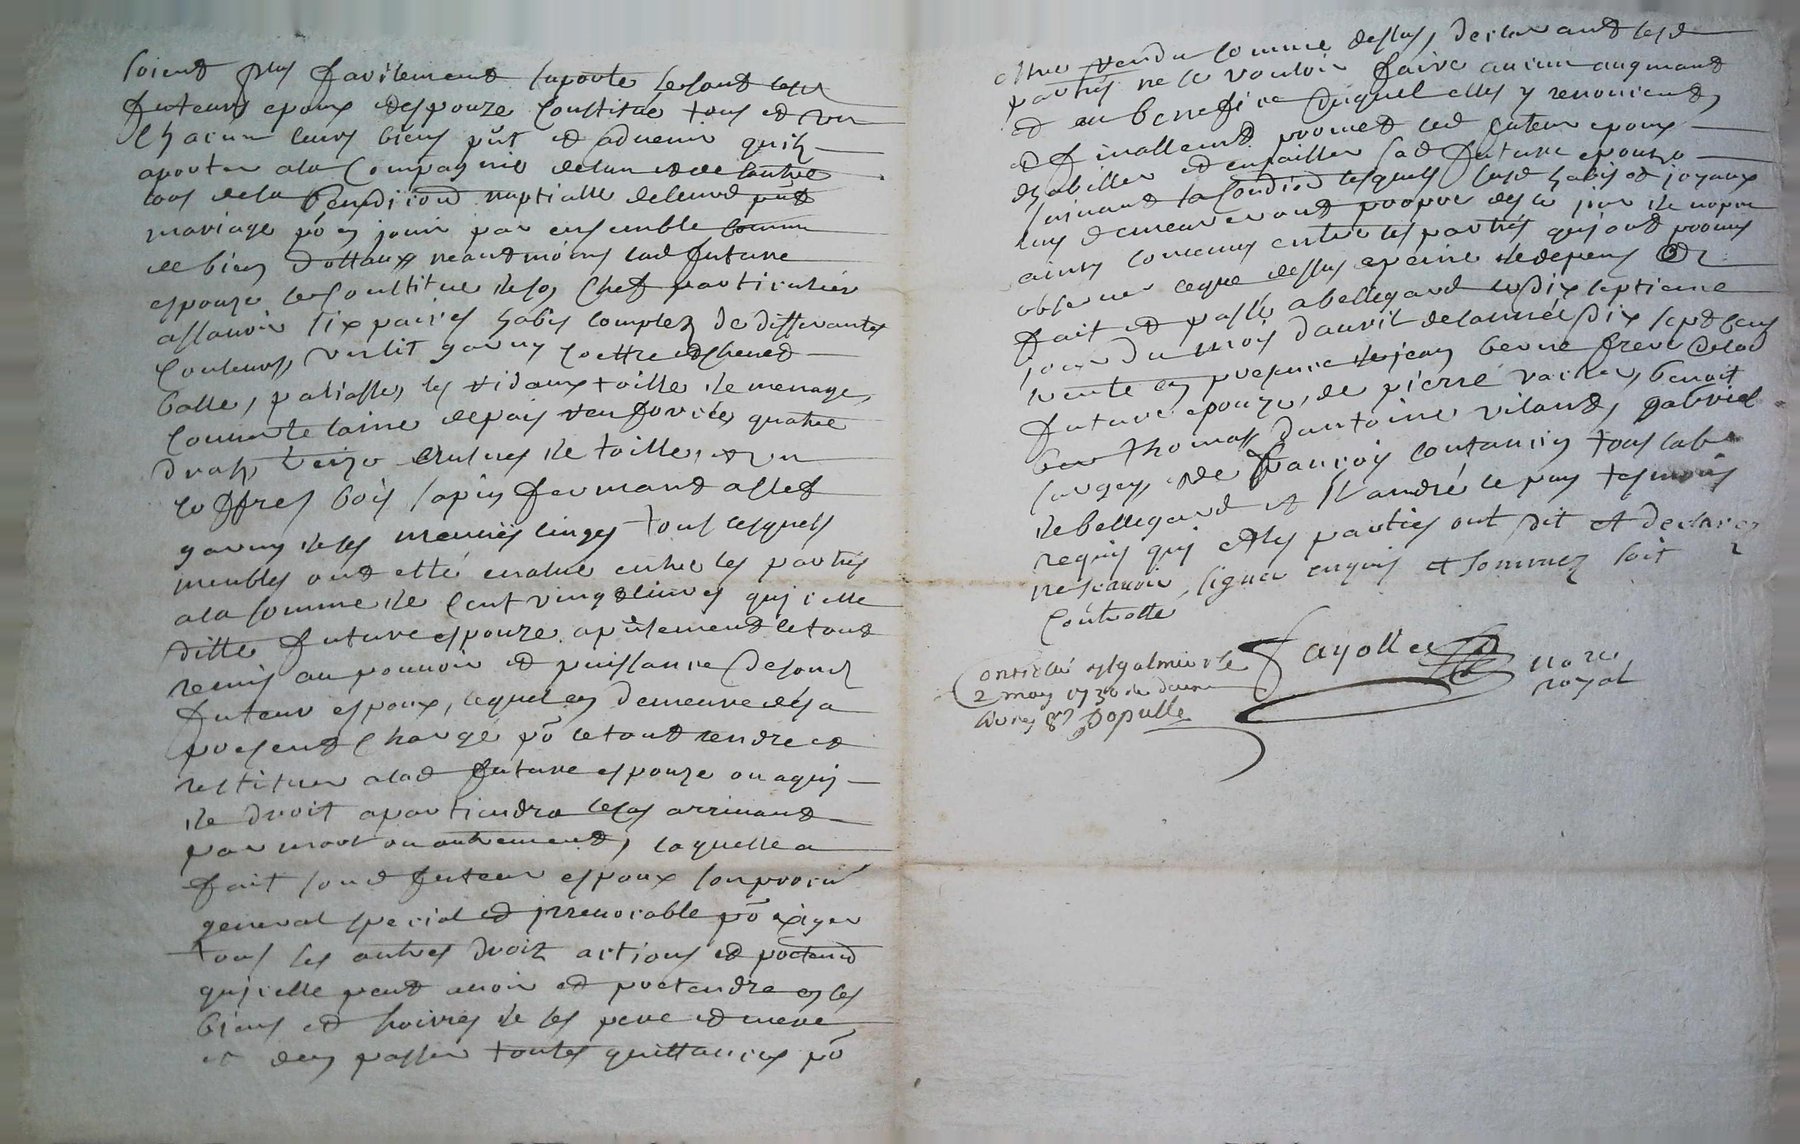 soient plus facilement suporte se sont lesd
futeurs epoux et espouze constitué tous et un
chacun leurs biens pñt et advenir quilz
aporter a la compagnie de lun et de lautre
lors de la benediciond nuptialle de leurd pñt
mariage pō en jouir par ensemble comme
de biens dottaux neantmoins lad future
espouze se constitue de son chef particulier
assauoir six paires habis complez de differantes
couleurs, un lit garny coettre et chevet
balle, paliasse, les ridaux toille de menage,
couuerte laine depais renforcée, quatre
draps, aulnes de toilles, et un
coffres bois sapin fermant a clef
garny de ses menuës linges tous lesquels
meubles ont esté evalué entre les partïes
a la somme de cent vingt liures qui icelle
ditte future espouze a psentement le tout
remis au pouuoir et puissance de sond
futeur espoux, lequel en demeure des a
present chargé pō le tout rendre et
restituer a lad future espouze ou a qui
de droit apartiendra le cas arriuant
par mort ou autrement, laquelle a
fait sond futeur espoux son procur
general special et jrreuocable pō exiger
tous les autres droitz actions et pōtend
qu'icelle peut auoir et pretendre en les
biens et hoiries de ses pere et mere
et den passer toutes quittances pō
estre rendu comme dessus, declarant lesd
partïes ne le vouloir faire aucun augmant
et au benefice duquel elles y renoncient,
et finallement promet led futeur epoux
dhabiller et enjoailler sad future epouze
suiuant sa condiōn lesquels susd habis et joyaux
luy demeureront propre des ce jour de nopce
ainsy conuenus entre les partïes qui ont promis
obseruer ce que dessus a peine de depens &c
fait et passé a bellegard le dix septieme
jour du mois dauril de lannée dix sept cens
trente en presence de jean berne frere de lad
future epouze, de pierre vacher, benoit
thomas dantoine viland, gabriel
et de françois coutancin tous lab
de bellegard et st andré le puy tesmoins
requis qui et les parties ont dit et declarez
ne scauoir signer enquis et sommez soit
controlle
Fayolle
no re
royal
Controllé a st galmier le
2 may 1730 Rc douze
liures 8s Populle